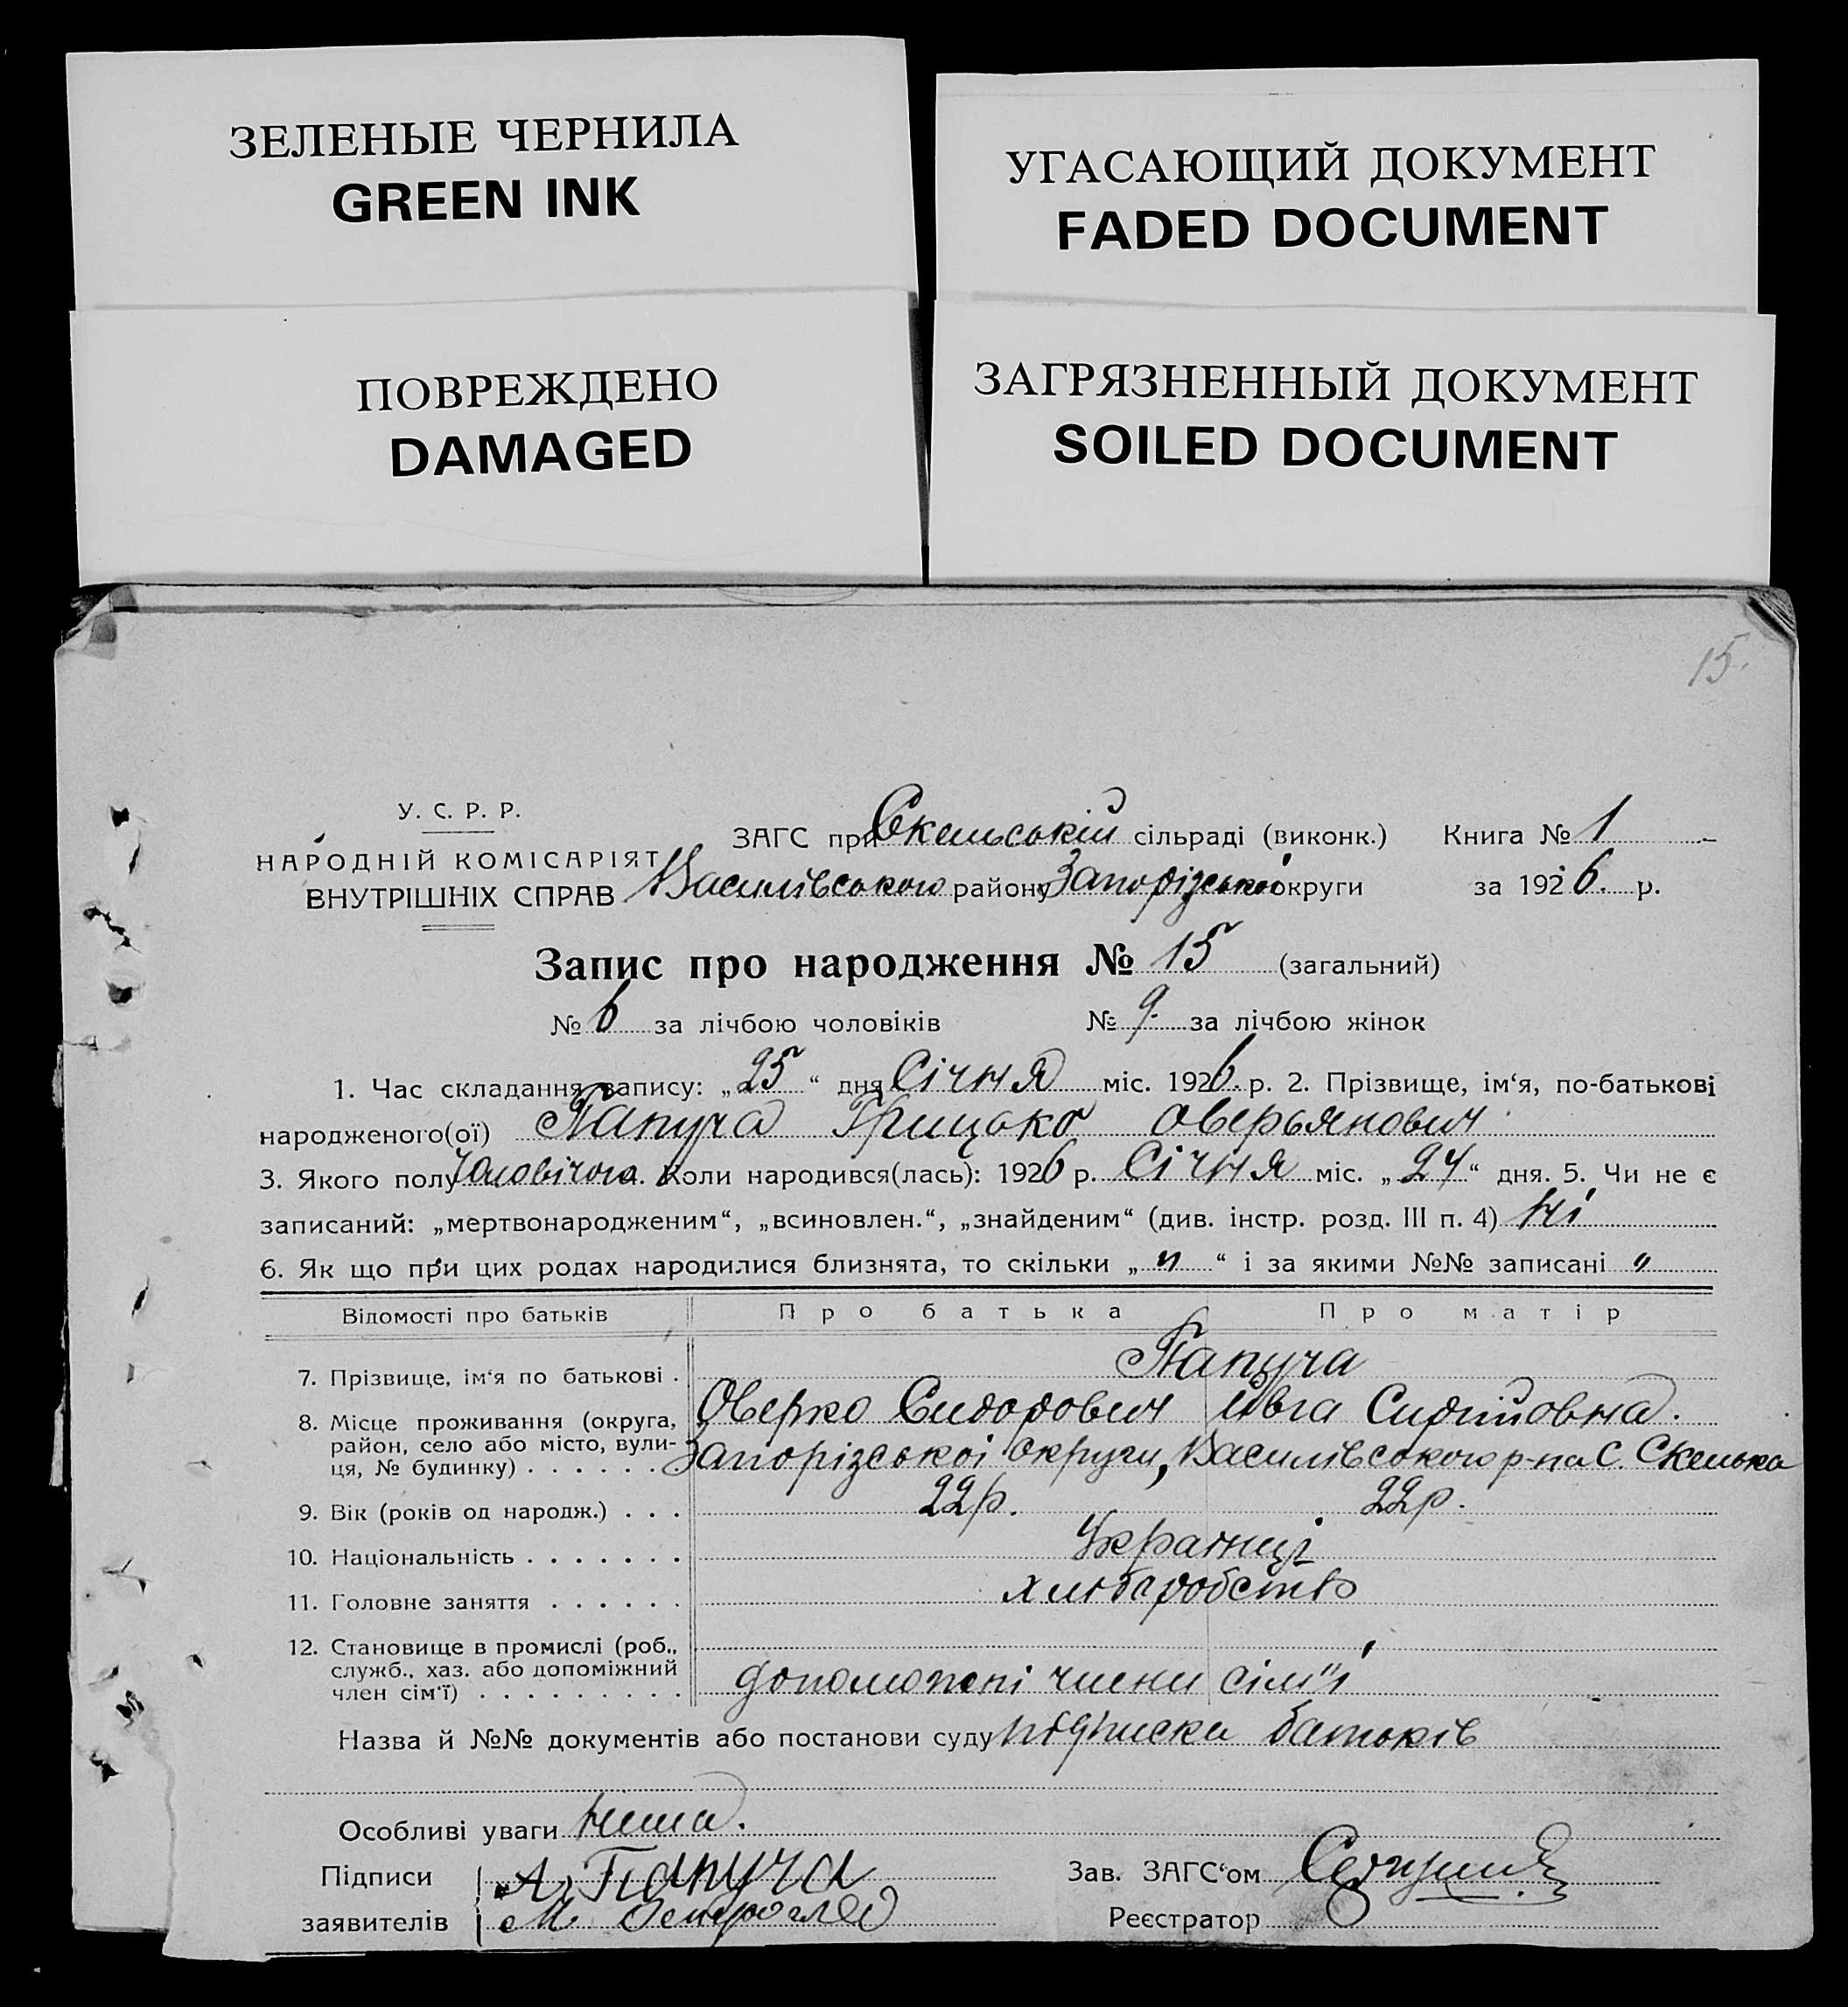 ЗЕЛЕНЫЕ ЧЕРНИЛА
GREEN INK
УГАСАЮЩИЙ ДОКУМЕНТ
FADED DOCUMENT
ПОВРЕЖДЕНО
DAMAGED
ЗАГРЯЗНЕННЫЙ ДОКУМЕНТ
SOILED DOCUMENT
15.
У. С. Р. Р.
НАРОДНІЙ КОМІСАРІЯТ
ВНУТРІШНІХ СПРАВ
ЗАГС при Скельській сільраді (виконк.) Книга № 1
Василівського району Запорізської округи за 1926. р.
Запис про народження № 15 (загальний)
№ 6 за лічбою чоловіків № 9. за лічбою жінок
1. Час складання запису: „25“ дня Січня міс. 1926. р. 2. Прізвище, ім‘я, по-батькові
народженого(ої) Папуча Грицько Оверьянович
3. Якого полу Чоловічого. Коли народився(лась): 1926 р. Січня міс. „24“ дня. 5. Чи не є
записаний: „мертвонародженим“, „всиновлен.“, „знайденим“ (див. інстр. розд. III п. 4) Ні
6. Як що при цих родах народилися близнята, то скільки „ " “ і за якими №№ записані "
Відомості про батьків Про батька Про матір
7. Прізвище, ім‘я по батькові . Папуча
Оверко Сидорович Ивга
8. Місце проживання (округа,
район, село або місто, вули-
ця, № будинку) . . . . . . Запорізської округи, Василівського р-на С. Скелька
9. Вік (років од народж.) . . . 22 р. 22 р.
10. Національність . . . . . . . Украінці
11. Головне заняття . . . . . . хліборобство
12. Становище в промислі (роб.,
служб., хаз. або допоміжний
член сім‘ї) . . . . . . . . . допоможні члени сім"і
Назва й №№ документів або постанови суду підписка батьків
Особливі уваги Нима.
Підписи
заявителів
А. Папуча
М.
Зав. ЗАГС‘ом
Реєстратор